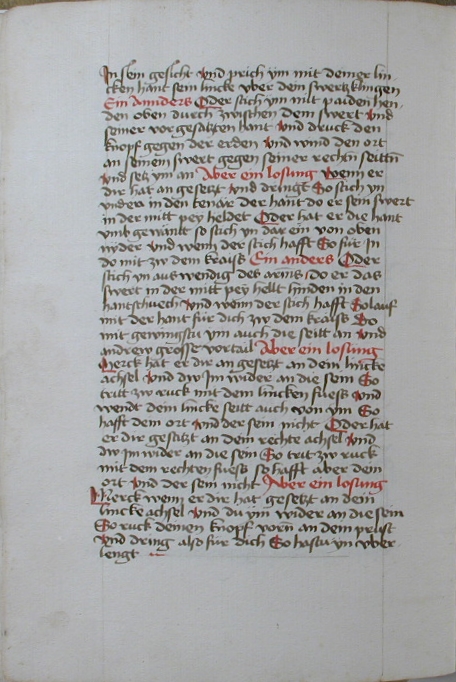 In sein gesicht Vnd prich ym mit deiner lin-
cken hant sein lincke vber dem swertzklingen
Ein annders Oder stich ym mit paiden hen-
den oben durch zwischen dem swert vnd
seiner vorgesatzten hant Vnd druck den
knopf gegen der erden vnd wind den ort
an seinem swert gegen seiner rechtn seittñ
Vnd setz ym an Aber ein losung Wenn er
dir hat an gesetzt vnd dringt So stich yn
vnden in den kenär der hant do er sein swert
in der mitt pey heldet Oder hat er die hant
vmb gewantt so stich yn dar ein von oben
nyder Vnd wenn der stich hafft So für In
do mit zw dem kraiss Ein anders Oder
stich yn aus wendig des arms do er das
swert in der mitt pey hellt hinden in den
hantschuech Vnd wenn der stich hafft So lauf
mit der hant für dich zw dem kraiss So
mit gewingstu ym auch die seitt an Vnd
andrew grosse vortail Aber ein losung
Merck hat er dir an gesetzt an dem lincke
achsel Vnd dw Im wider an die sein So
tritt zw ruck mit dem lincken fuess Vnd
wendt dem lincke seitt auch von ym So
hafft dem ort Vnd der sein nicht Oder hat
er dir gesatzt an dem rechte achsel Vnd
dw Im wider an die sein So trit zw ruck
mit dem rechten fuess so hafft aber dem
ort Vnd der sein nicht Aber ein losung
Merck wenn er dir hat gesetzt an dein
lincke achsel Vnd du ym wider an die sein
So ruck deinen knopf vorn an dem prust
Vnd dring also für dich So hastu yn vber
lengt